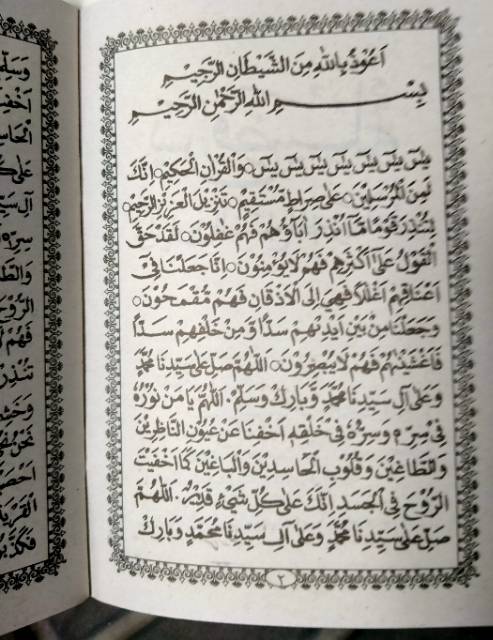 اَعُوْذُ بِاللهِ مِنَ الشَّيْطَانِ الرَّجِيْمِ
بِسْمِ اللهِ الرَّحْمٰنِ الرَّحِيْمِ
يٰسۤ يٰسۤ يٰسۤ يٰسۤ يٰسۤ يٰسۤ يٰسۤ ۝ وَالْقُرْاٰنِ الْحَكِيْمِ ۝ اِنَّكَ
لَمِنَ الْمُرْسَلِيْنَ ۝ عَلٰى صِرَاطٍ مُسْتَقِيْمٍ ۝ تَنْزِيْلَ الْعَزِيْزِ الرَّحِيْمِ ۝
لِتُنْذِرَ قَوْمًا مَّا اُنْذِرَ اٰبَاؤُهُمْ فَهُمْ غٰفِلُوْنَ ۝ لَقَدْ حَقَّ
الْقَوْلُ عَلٰى اَكْثَرِهِمْ فَهُمْ لَا يُؤْمِنُوْنَ ۝ اِنَّا جَعَلْنَا فِيْ
اَعْنَاقِهِمْ اَغْلَالًا فَهِيَ اِلَى الْاَذْقَانِ فَهُمْ مُقْمَحُوْنَ ۝
وَجَعَلْنَا مِنْ بَيْنِ اَيْدِيْهِمْ سَدًّا وَّمِنْ خَلْفِهِمْ سَدًّا
فَاَغْشَيْنٰهُمْ فَهُمْ لَا يُبْصِرُوْنَ ۝ اَللّٰهُمَّ صَلِّ عَلٰى سَيِّدِنَا مُحَمَّدٍ
وَعَلٰى آلِ سَيِّدِنَا مُحَمَّدٍ وَّبَارِكْ وَسَلِّمْ. اَللّٰهُمَّ يَا مَنْ نُوْرُهُ
فِيْ سِرِّهٖ وَسِرُّهُ فِيْ خَلْقِهٖ اَخْفِنَا عَنْ عُيُوْنِ النَّاظِرِيْنَ
وَالطَّاغِيْنَ وَقُلُوْبِ الْحَاسِدِيْنَ وَالْبَاغِيْنَ كَمَا اَخْفَيْتَ
الرُّوْحَ فِى الْجَسَدِ اِنَّكَ عَلٰى كُلِّ شَيْءٍ قَدِيْرٌ. اَللّٰهُمَّ
صَلِّ عَلٰى سَيِّدِنَا مُحَمَّدٍ وَّعَلٰى آلِ سَيِّدِنَا مُحَمَّدٍ وَّبَارِكْ
٢